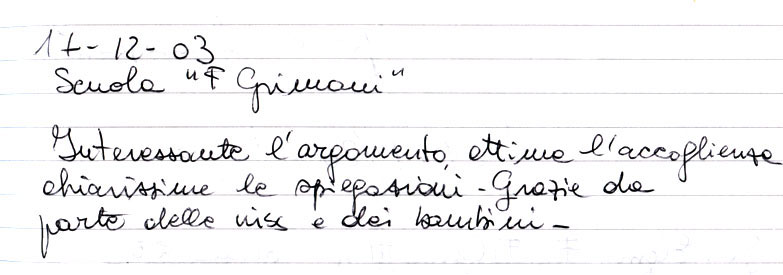 17-12-03
Scuola "F Grimani"
Interessante l'argomento, ottima l'accoglienza
chiarissime le spiegazioni - Grazie da
parte delle inss e dei bambini -